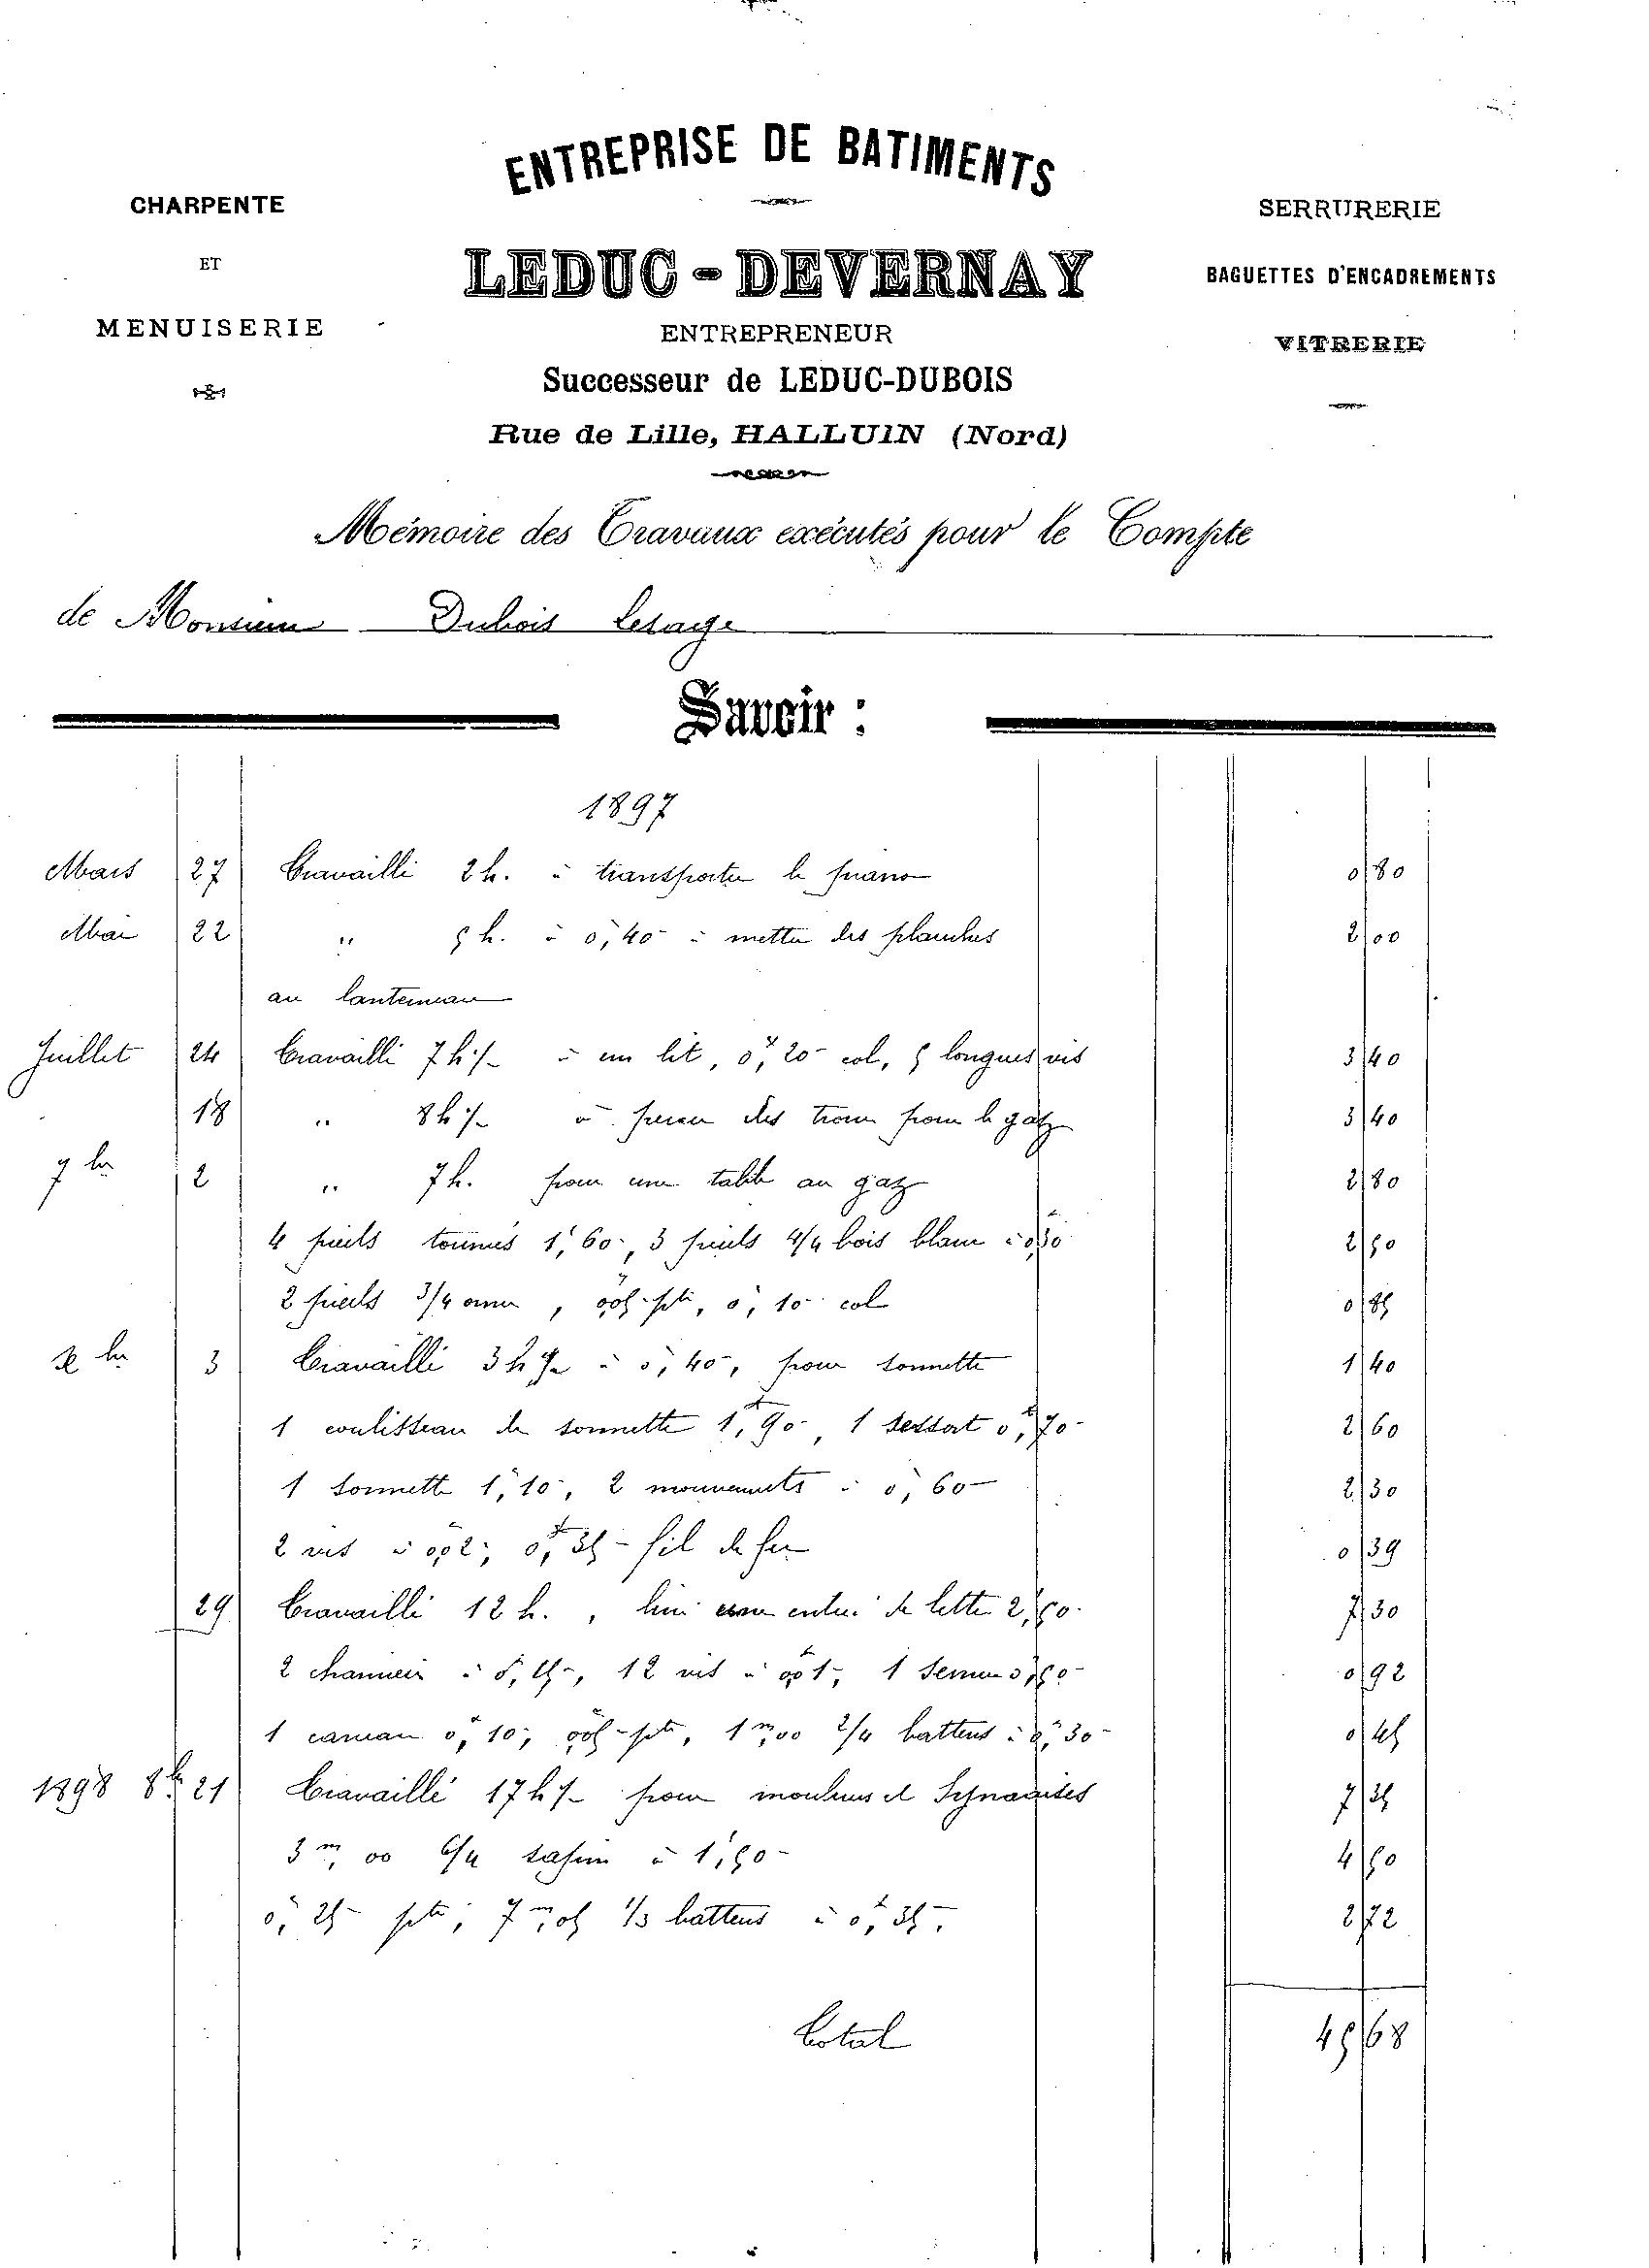 ENTREPRISE DE BATIMENTS
CHARPENTE
ET
MENUISERIE
LEDUC-DEVERNAY
ENTREPRENEUR
Successeur de LEDUC-DUBOIS
Rue de Lille, HALLUIN (Nord)
SERRURERIE
BAGUETTES D'ENCADREMENTS
VITRERIE
Mémoire des Travaux exécutés pour le Compte
de Monsieur Dubois Lesage
Savoir :
1897
Mars 27 Travaillé 2 h. à transporter le piano 0 80
Mai 22 " 5 h. à 0,40 à mettre des planches 2 00
au lanterneau
Juillet 24 Travaillé 7 h ½ à un lit, 0,20 col, 5 longues vis 3 40
18 " 8 h ½ à percer des trous pour le gaz 3 40
7 bre 2 " 7 h. pour une table au gaz 2 80
4 pieds tournés 1,60, 3 pieds 4/4 bois blanc à 0,30 2 50
2 pieds 3/4 , 0,05 pte, 0,10 col 0 85
X bre 3 Travaillé 3 h ½ à 0,40, pour sonnette 1 40
1 coulisseau de sonnette 1,90, 1 ressort 0,70 2 60
1 sonnette 1,10, 2 mouvements à 0,60 2 30
2 vis à 0,02, 0,35 fil de fer 0 39
29 Travaillé 12 h., une entrée de lettre 2,50 7 30
2 charnières à 0,15, 12 vis à 0,01, 1 0,50 0 92
1 0,10, 0,05 pte, 1 m,00 2/4 battens à 0,30 0 45
1898 8 bre 21 Travaillé 17 h ½ pour moulures et 7 35
3 m,00 6/4 sapin à 1,50 4 50
0,25 pte, 7 m,05 1/3 battens à 0,35 2 72
Total 45 68